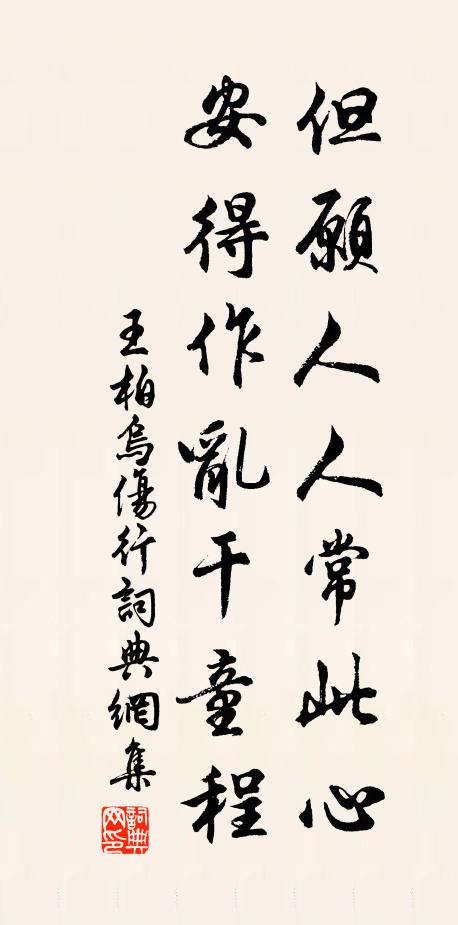 但願人人常此心
安得作亂干童程
王柏烏傷行詞典網集
詞典网印